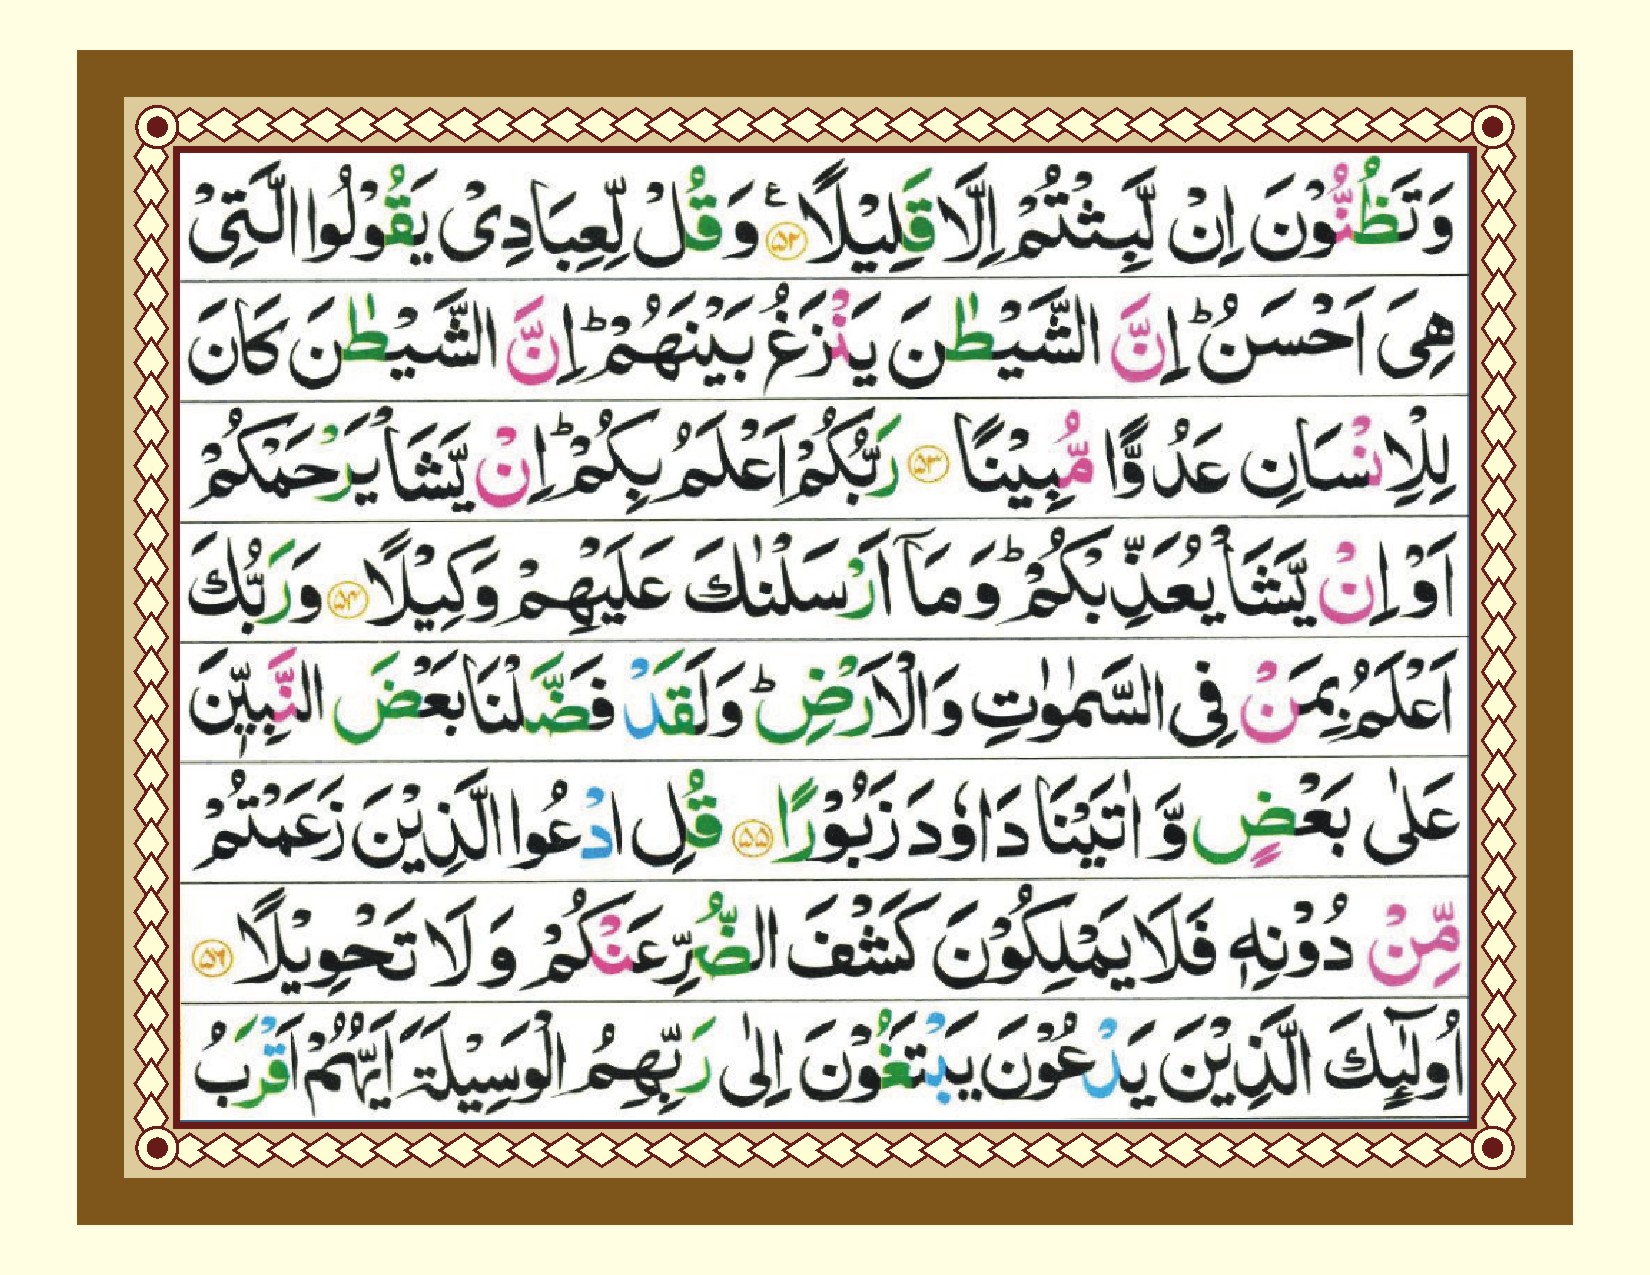 وَتَظُنُّوْنَ اِنْ لَّبِثْتُمْ اِلَّا قَلِيْلًا ﴿۵۲﴾ ع وَقُلْ لِّعِبَادِیْ يَقُوْلُوا الَّتِیْ
هِیَ اَحْسَنُ ؕ اِنَّ الشَّيْطٰنَ يَنْزَغُ بَيْنَهُمْ ؕ اِنَّ الشَّيْطٰنَ كَانَ
لِلْاِنْسَانِ عَدُوًّا مُّبِيْنًا ﴿۵۳﴾ رَبُّكُمْ اَعْلَمُ بِكُمْ ؕ اِنْ يَّشَاْ يَرْحَمْكُمْ
اَوْ اِنْ يَّشَاْ يُعَذِّبْكُمْ ؕ وَمَاۤ اَرْسَلْنٰكَ عَلَيْهِمْ وَكِيْلًا ﴿۵۴﴾ وَرَبُّكَ
اَعْلَمُ بِمَنْ فِی السَّمٰوٰتِ وَالْاَرْضِ ؕ وَلَقَدْ فَضَّلْنَا بَعْضَ النَّبِيّٖنَ
عَلٰی بَعْضٍ وَّاٰتَيْنَا دَاوٗدَ زَبُوْرًا ﴿۵۵﴾ قُلِ ادْعُوا الَّذِيْنَ زَعَمْتُمْ
مِّنْ دُوْنِهٖ فَلَا يَمْلِكُوْنَ كَشْفَ الضُّرِّ عَنْكُمْ وَلَا تَحْوِيْلًا ﴿۵۶﴾
اُولٰٓئِكَ الَّذِيْنَ يَدْعُوْنَ يَبْتَغُوْنَ اِلٰی رَبِّهِمُ الْوَسِيْلَةَ اَيُّهُمْ اَقْرَبُ